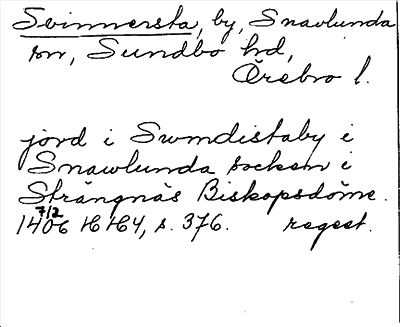 Svinnersta, by, Snavlunda
sn, Sundbo hd,
Örebro l.
jord i Swmdistaby i
Snawlunda socken i
Strängnäs Biskopsdöme.
7/2
1406 HH4, s. 376. regest.